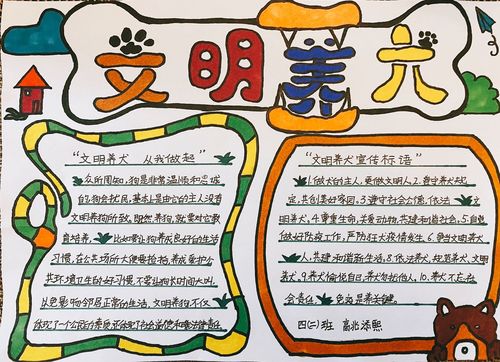 文明养犬
“文明养犬 从我做起”
众所周知,狗是非常温顺和忠诚
的,狗会扰民,基本上是由它的主人没有
文明养狗所致。既然养狗,就要对它教
育培养。比如要让狗养成良好的生活
习惯,在公共场所大便要捡拾,养成爱护公
共环境卫生的好习惯,不要让狗长时间大叫,
以免影响邻居正常的生活,文明养狗不仅
体现了一个公民的素质
“文明养犬宣传标语”
1.做犬的主人,要做文明人。2.遵守养犬规
定,共创美好家园。3.遵守社会公德,依法文
明养犬。4.尊重生命,关爱动物,共建和谐社会。5.自觉
做好防疫工作,严防狂犬疫情发生。6.争当文明养犬
人,共建和谐新生活。8.依法养犬,规范养犬,文明
养犬。9.养犬愉悦自己,养犬勿扰他人。10.养犬不在
会责任 免疫是养关键。
四(二)班